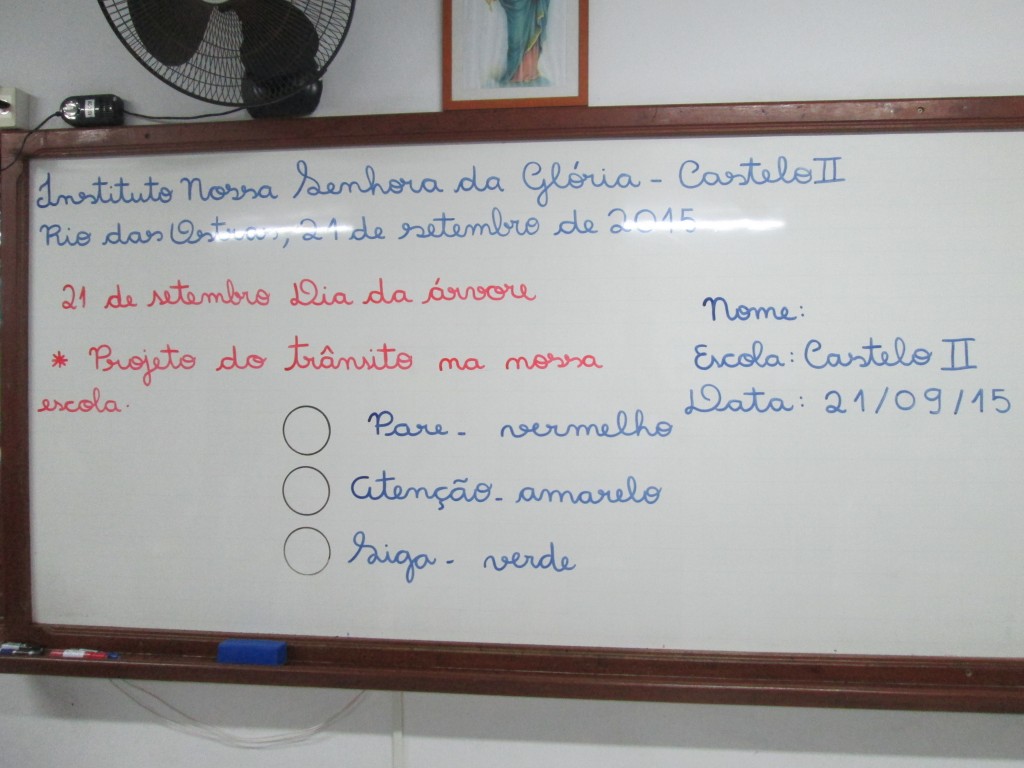 Instituto Nossa Senhora da Glória - Castelo II
Rio das Ostras, 21 de setembro de 2015
21 de setembro Dia da árvore
* Projeto do trânsito na nossa
escola.
Nome:
Escola: Castelo II
Data: 21/09/15
Pare - vermelho
Atenção - amarelo
Siga - verde